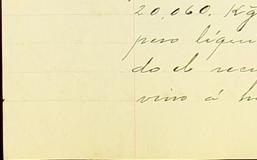 20,060. Kg
pero líqui
do el reci
vino á h